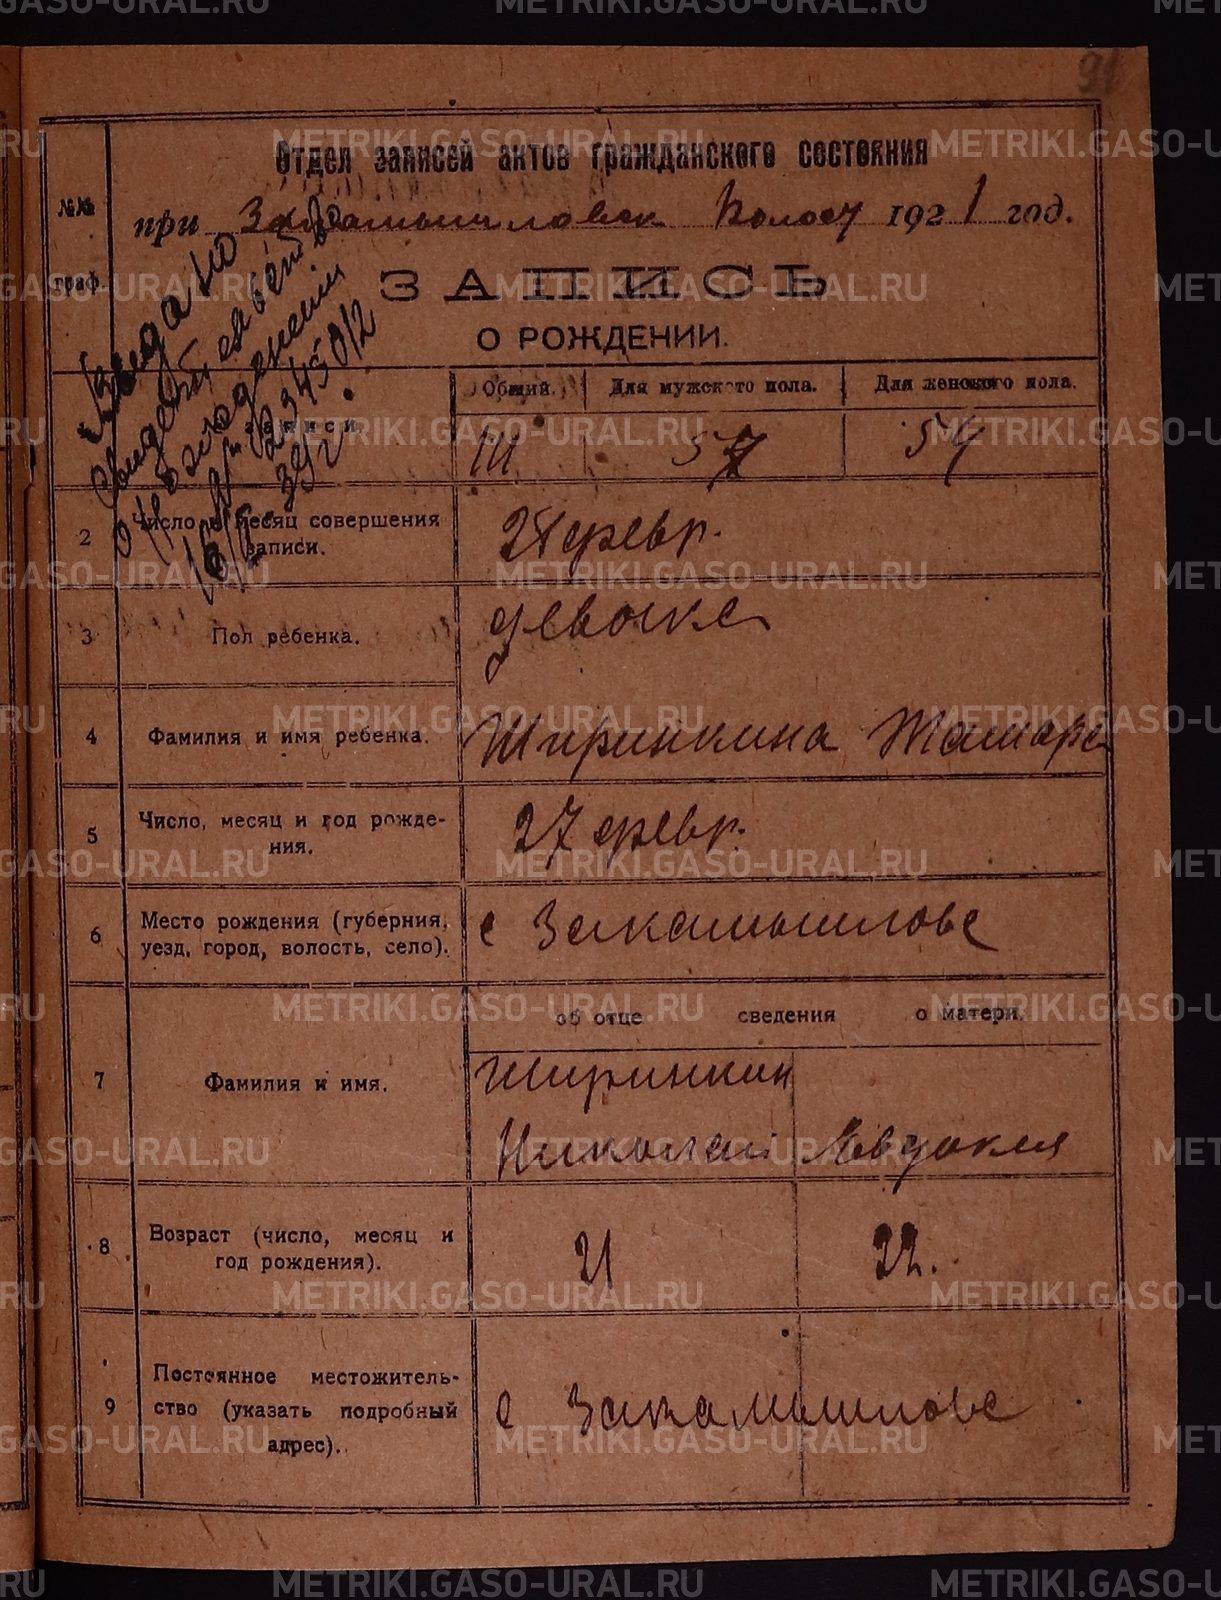 91
Отдел записей актов гражданского состояния
№№ граф.
при Закамышловск Волост 1921 год.
ЗАПИСЬ
О РОЖДЕНИИ.
Выдано
свидет,
о рождении
39 г.
записи.
Общий. Для мужского пола. Для женского пола.
111 57 54
2 Число и месяц совершения
записи.
февр.
3 Пол ребенка.
4 Фамилия и имя ребенка. Ширинкина Тамара
5 Число, месяц и год рожде-
ния.
27 февр.
6 Место рождения (губерния,
уезд, город, волость, село).
с Закамышлово
об отце сведения о матери.
7 Фамилия и имя.
Ширинкин
Николай Евдокия
8 Возраст (число, месяц и
год рождения).
21 22.
9 Постоянное местожитель-
ство (указать подробный
адрес).
с Закамышлово
METRIKI.GASO-URAL.RU